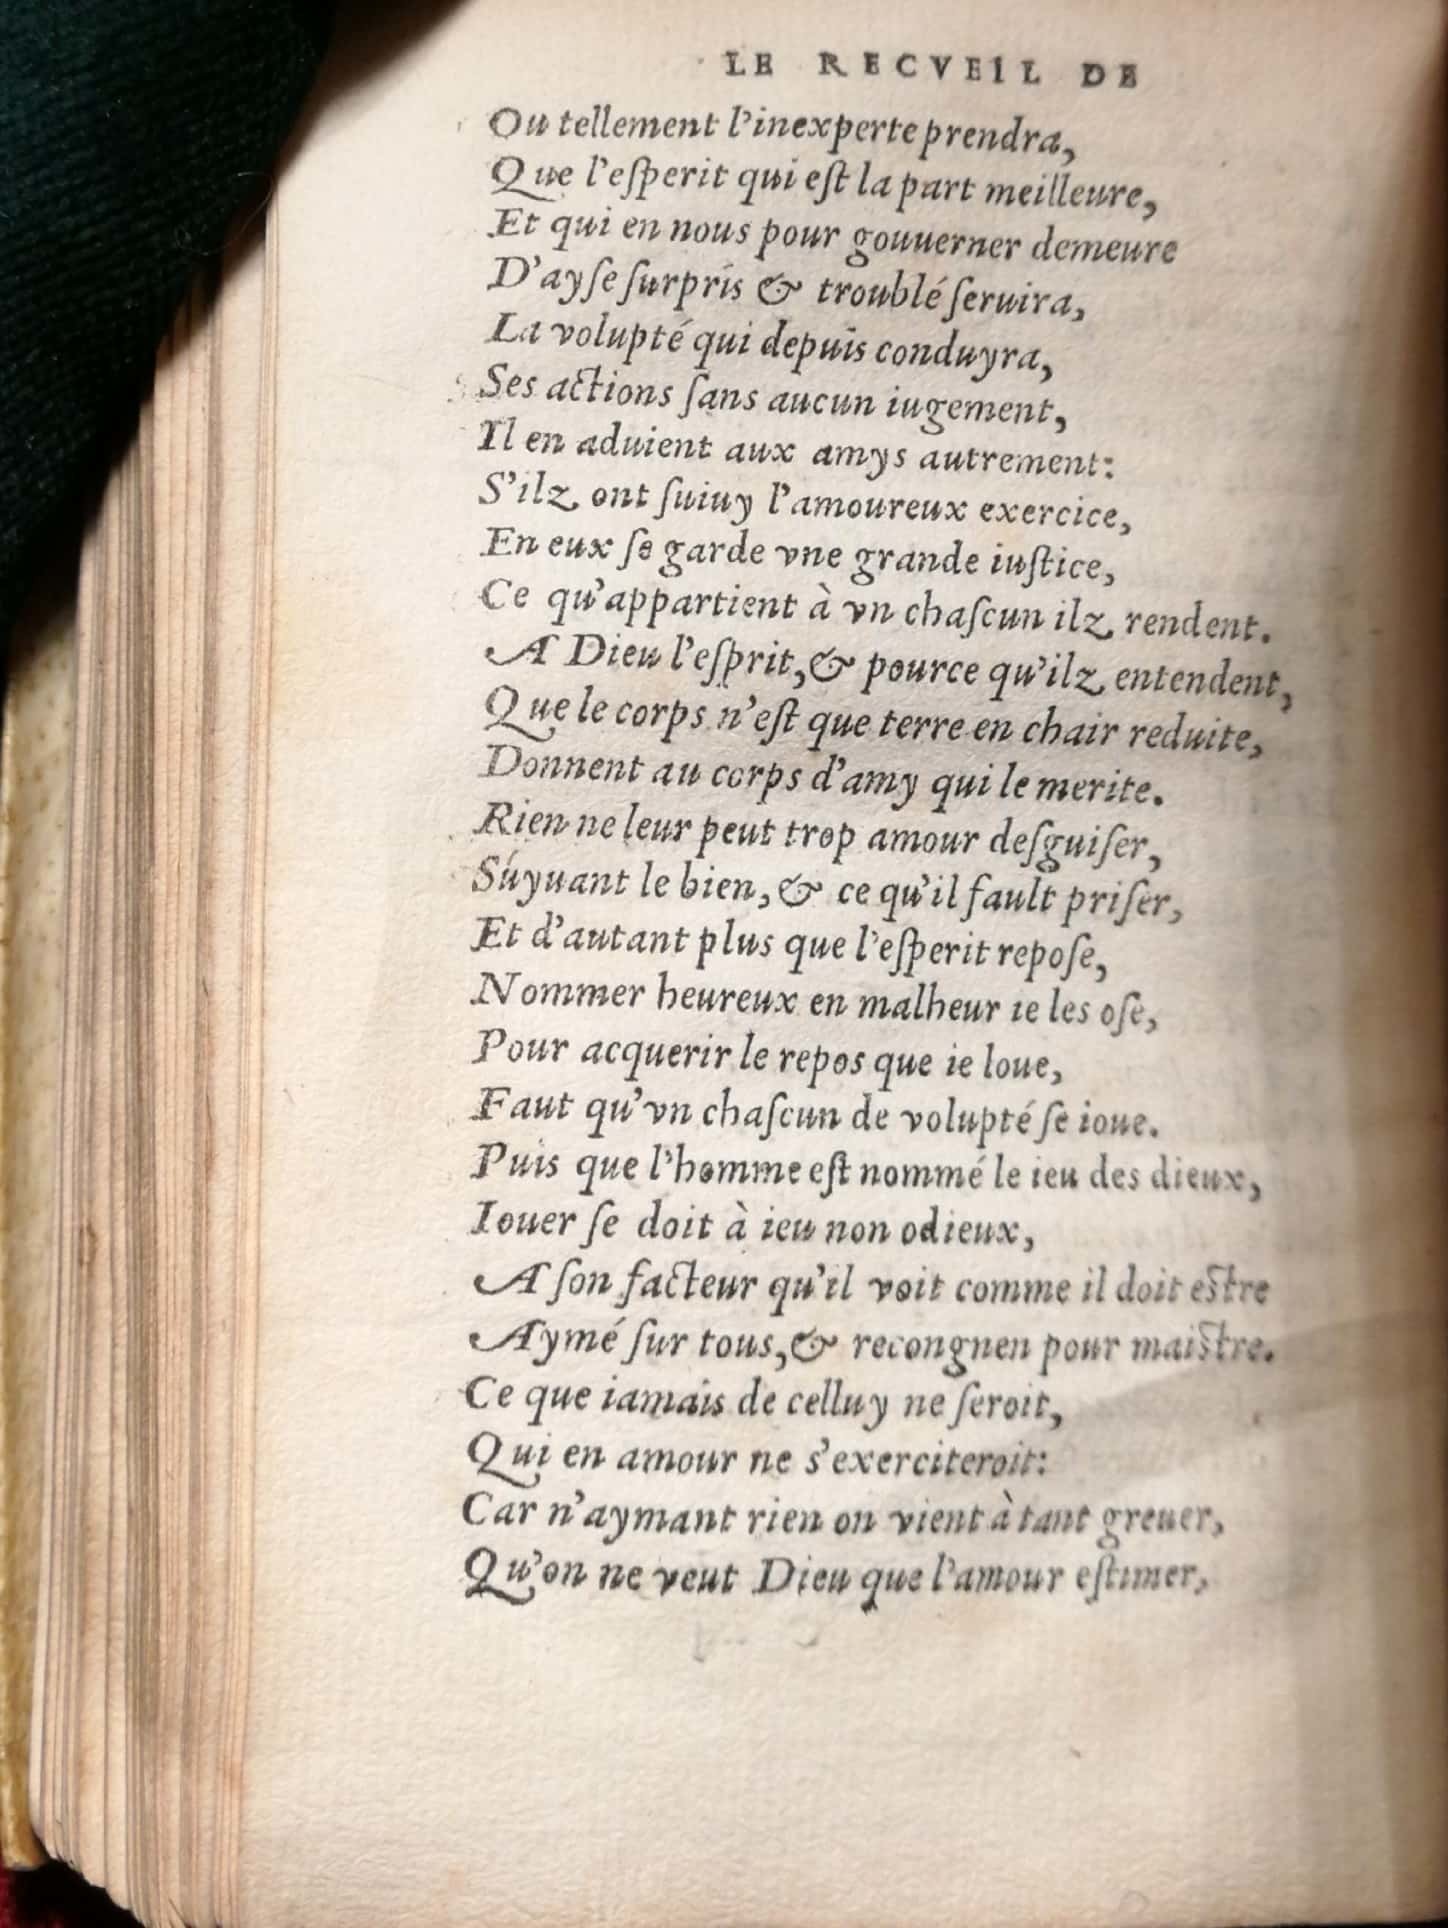 LE RECVEIL DE
Ou tellement l'inexperte prendra,
Que l'eſperit qui eſt la part meilleure,
Et qui en nous pour gouuerner demeure
D'ayſe ſurpris & troublé ſeruira,
La volupté qui depuis conduyra,
Ses actions ſans aucun iugement,
Il en aduient aux amys autrement:
S'ilz ont ſuiuy l'amoureux exercice,
En eux ſe garde vne grande iuſtice,
Ce qu'appartient à vn chaſcun ilz rendent.
A Dieu l'eſprit, & pource qu'ilz entendent,
Que le corps n'eſt que terre en chair reduite,
Donnent au corps d'amy qui le merite.
Rien ne leur peut trop amour deſguiſer,
Súyuant le bien, & ce qu'il fault priſer,
Et d'autant plus que l'eſperit repoſe,
Nommer heureux en malheur ie les oſe,
Pour acquerir le repos que ie loue,
Faut qu'vn chaſcun de volupté ſe ioue.
Puis que l'homme eſt nommé le ieu des dieux,
Iouer ſe doit à ieu non odieux,
A ſon facteur qu'il voit comme il doit eſtre
Aymé ſur tous, & recongnen pour maiſtre.
Ce que iamais de celluy ne ſeroit,
Qui en amour ne s'exerciteroit:
Car n'aymant rien on vient à tant greuer,
Qu'on ne veut Dieu que l'amour eſtimer,